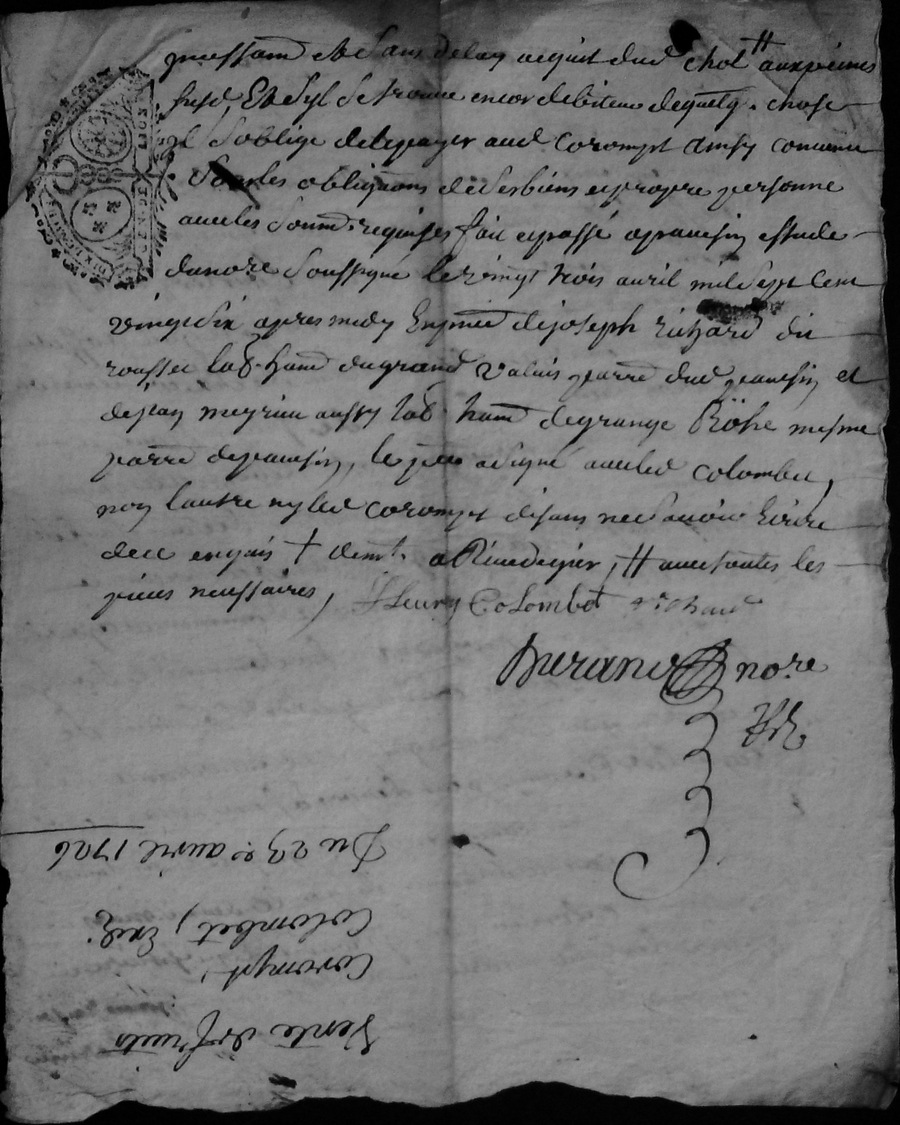 sans delay acquit dud chol ♯ aux peines
susd Et Syl Se trouve encor debiteur de quelq. chose
il S'oblige de le payer aud Corompt ainsy convenu
Sous les obligaons de Ses biens et propre personne
avec les Soumd. requises fait et passé a pavesin estude
du nore Soussigné le vingt trois avril mil Sept Cent
vingt Six apres midy En pnce de joseph richard dit
rousset lab. hant du grand parre dud pavesin et
de jean meyrieu aussy lab hant de grange mesme
parre de pavesin, le pr a Signé avec led Colombet,
non l'autre ny led Corompt disans ne Savoir Ecrire
dece enquis † a Rivedegier, ♯ avec toutes les
pieces necessaires, Fleury Colombet richard
Durand nore
Vente de fruits
Corompt,
Colombet,
Du 23e avril 1726